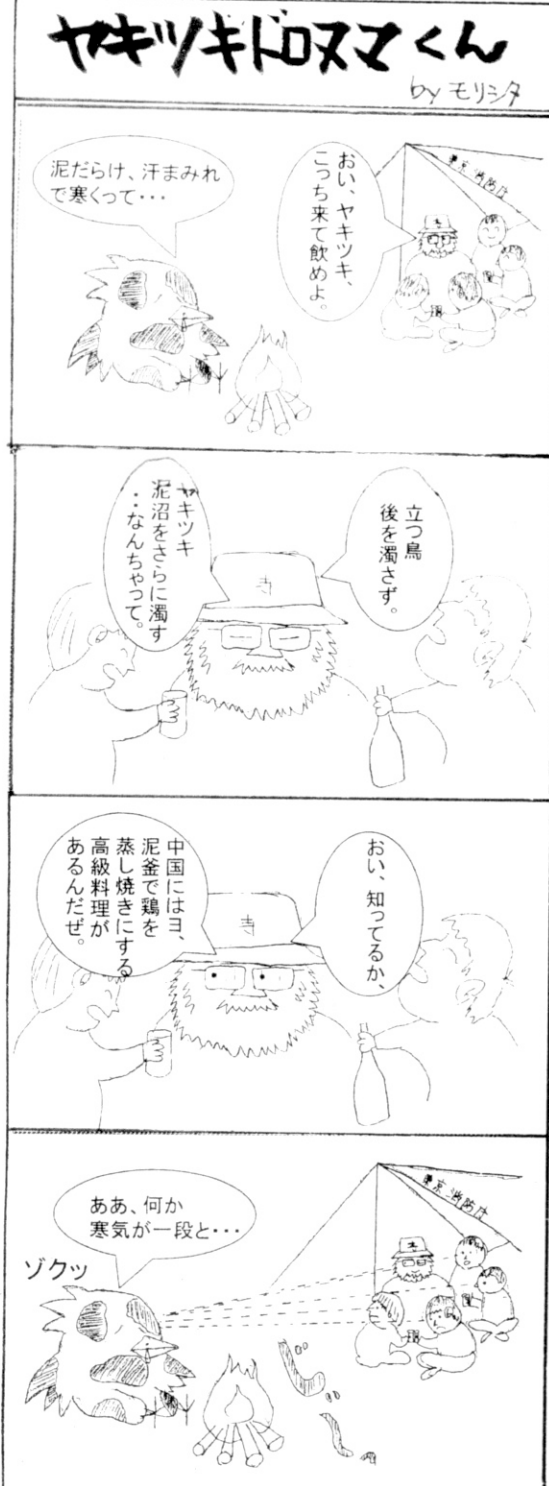 ヤキツキドロヌマくん
by モリシタ
東京消防庁
おい、ヤキツキ、
こっち来て飲めよ。
泥だらけ、汗まみれ
で寒くって・・・
立つ鳥
後を濁さず。
寺
ヤキツキ
泥沼をさらに濁す
・・なんちゃって。
おい、知ってるか、
寺
中国にはヨ、
泥釜で鶏を
蒸し焼きにする
高級料理が
あるんだぜ。
東京消防庁
ああ、何か
寒気が一段と・・・
ゾクッ